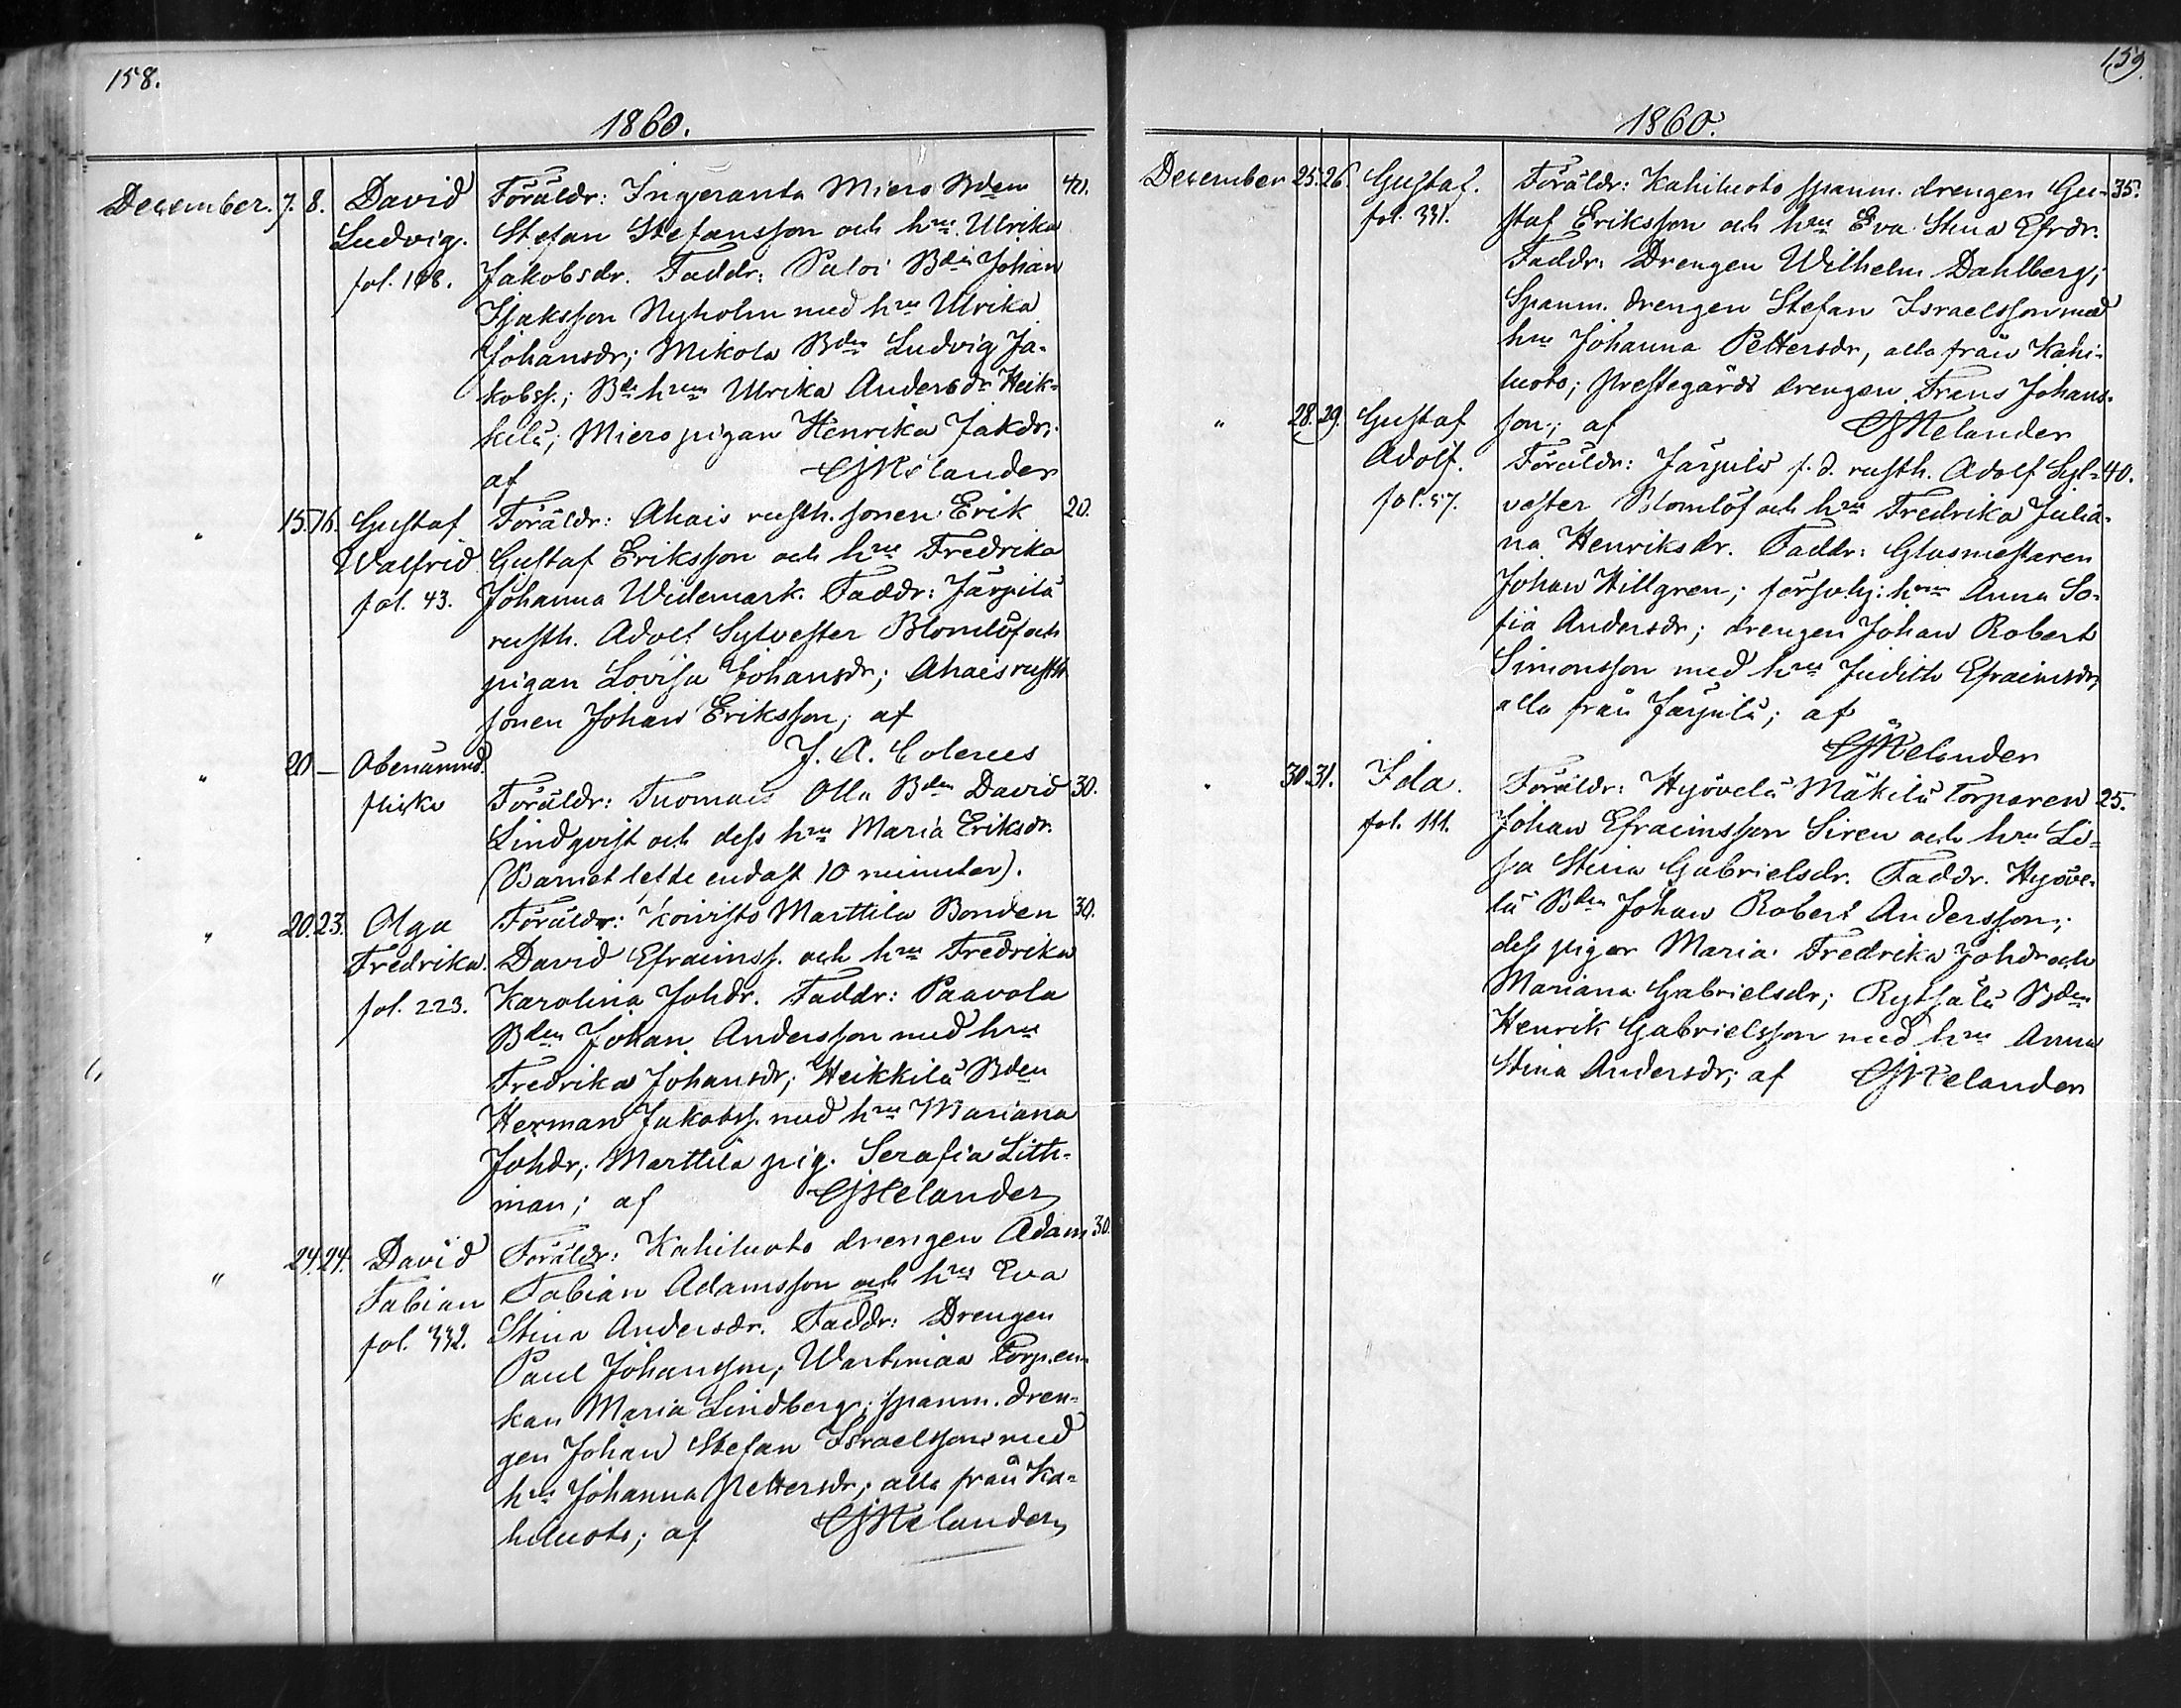 158.
1860.
December. 7. 8. David Föräldr: Ingeranta Miero Bden 40.
Ludvig. Stefan Stefansson och hru Ulrika
fol. 188. Jakobsdr. Faddr: Suloi Bdn Johan
Isaksson Nyholm med hru Ulrika
Johansdr; Mikola Bden Ludvig Ja-
kobss.; Bde hrun Ulrika Andersdr Heik-
kilä; Miero pigan Henrika Jakdr;
af CJMelander
" 15. 16. Gustaf Föräldr: Ahais rusth. sonen Erik 20.
Walfrid Gustaf Eriksson och hru Fredrika
fol. 43. Johanna Widemark. Faddr: Järpilä
rusth. Adolf Sylvester Blomlöf och
pigan Lovisa Johansdr; Ahais rusth
sonen Johan Eriksson; af
J. A. Colerus
" 20 — Obenämnd. 
flicka Föräldr: Tuomais Olla Bden David 30.
Lindqvist och dess hru Maria Eriksdr.
(Barnet lefde endast 10 minuter).
" 20. 23. Olga Föräldr: Koivisto Marttila Bonden 30.
Fredrika. David Efraimss. och hru Fredrika
fol. 223. Karolina Johdr. Faddr: Paavola
Bden Johan Andersson med hru
Fredrika Johansdr; Heikkilä Bden
Herman Jakobss. med hru Mariana
Johdr; Marttila pig. Serafia Lith-
man; af CJMelander
" 24. 24. David Föräldr: Kahiluoto drengen Adam 30.
Fabian Fabian Adamsson och hru Eva
fol. 332. Stina Andersdr. Faddr: Drengen
Paul Johansson; Torp.en-
kan Maria Lindberg; spanm. dren-
gen Johan Stefan Israelsson med
hru Johanna Pettersdr; alla från Ka-
hiluoto; af CJMelander
159.
1860.
December 25. 26. Gustaf. Föräldr: Kahiluoto spanm. drengen Gu- 35.
fol. 331. staf Eriksson och hru Eva Stina Efrdr.
Faddr: Drengen Wilhelm Dahlberg;
Spanm. drengen Stefan Israelsson med
hru Johanna Pettersdr, alla från Kahi-
luoto; Prestegårds drengen Frans Johans-
" 28. 29. Gustaf son; af CJMelander
Adolf. Föräldr: Järpilä f. d. rusth. Adolf Syl- 40.
fol. 57. vester Blomlöf och hru Fredrika Julia-
na Henriksdr. Faddr: Glasmestaren
Johan Hillgren; försvlg: hrun Anna So-
fia Andersdr; drengen Johan Robert
Simonsson med hru Judith Efraimsdr,
alla från Järpilä; af
CJMelander
" 30. 31. Ida. Föräldr: Hyövelä Mäkilä Torparen 25.
fol. 111. Johan Efraimsson Siren och hru Li-
sa Stina Gabrielsdr. Faddr. Hyöve-
lä Bden Johan Robert Andersson;
dess pigor Maria Fredrika Johdr och
Mariana Gabrielsdr; Rytsälä Bden
Henrik Gabrielsson med hru Anna
Stina Andersdr; af CJMelander